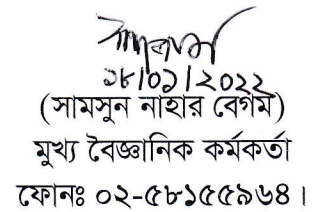 ১৮/০১/২০২২
(সামসুন নাহার বেগম)
মুখ্য বৈজ্ঞানিক কর্মকর্তা
ফোনঃ ০২-৫৮১৫৫৯৬৪।